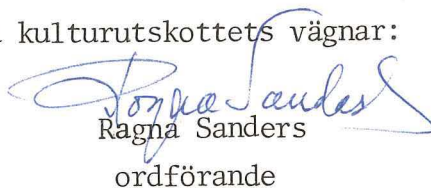 kulturutskottets vägnar:
Ragna Sanders
Ragna Sanders
ordförande